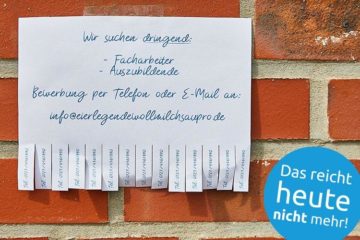 Wir suchen dringend:
- Facharbeiter
- Auszubildende
Bewerbung per Telefon oder E-Mail an:
info@eierlegendewollmilchsaupro.de
Das reicht
heute
nicht mehr!